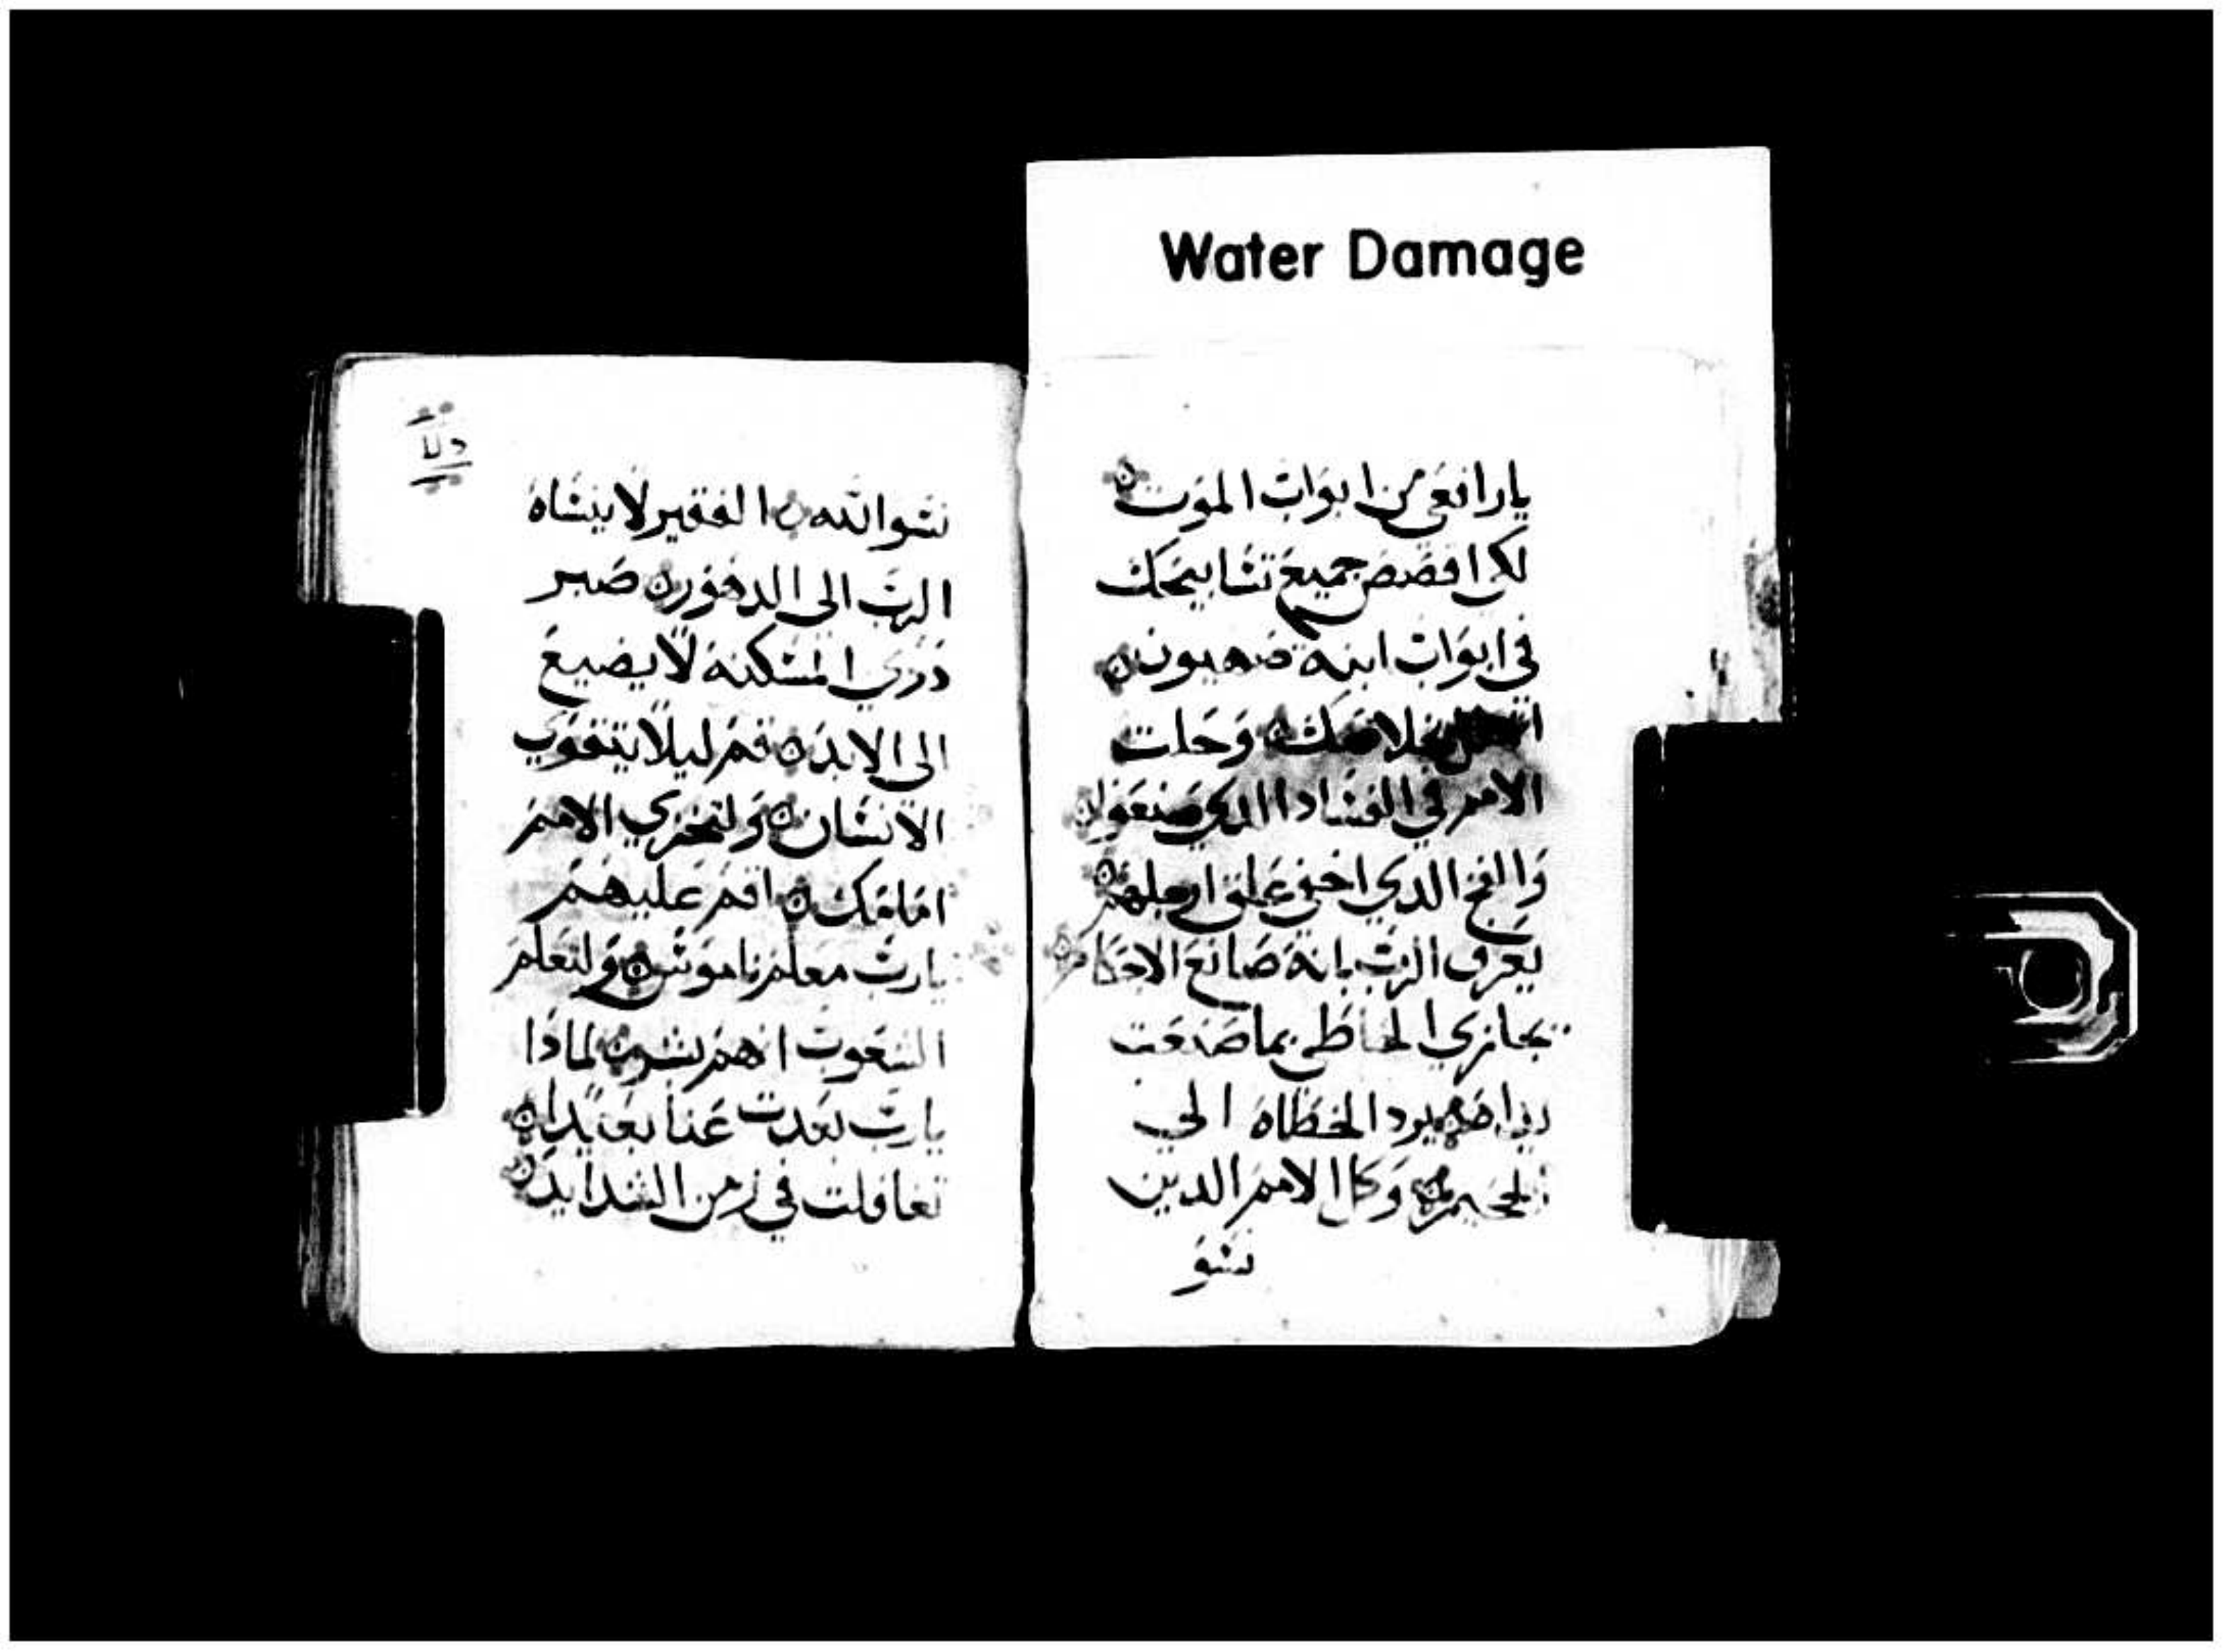 Water Damage
يارافعي من ابواب الموت
لكي اقصص جميع تشابيحك
في ابواب ابنة صهيون
بخلاصك وحلت
الامم في الفساد الدي صنعوا
والفخ الدي اخفي علق ارجلهم
يعرف الرب بانه صانع الاحكام
يجازي الخاطي بما صنعت
يداه يرد الخطاه الي
الجحيم وكل الامم الدين
نسو
نسوا الله الفقير لا ينساه
الرب الى الدهور صبر
دوي المسكنه لا يضيع
الى الابد قم ليلا يتقوي
الانسان ولتخزي الامم
امامك اقم عليهم
يارب معلم ناموس ولتعلم
الشعوب انهم بشر لمادا
يارب بعدت عنا بعيدا
تغافلت في زمن الشدايد